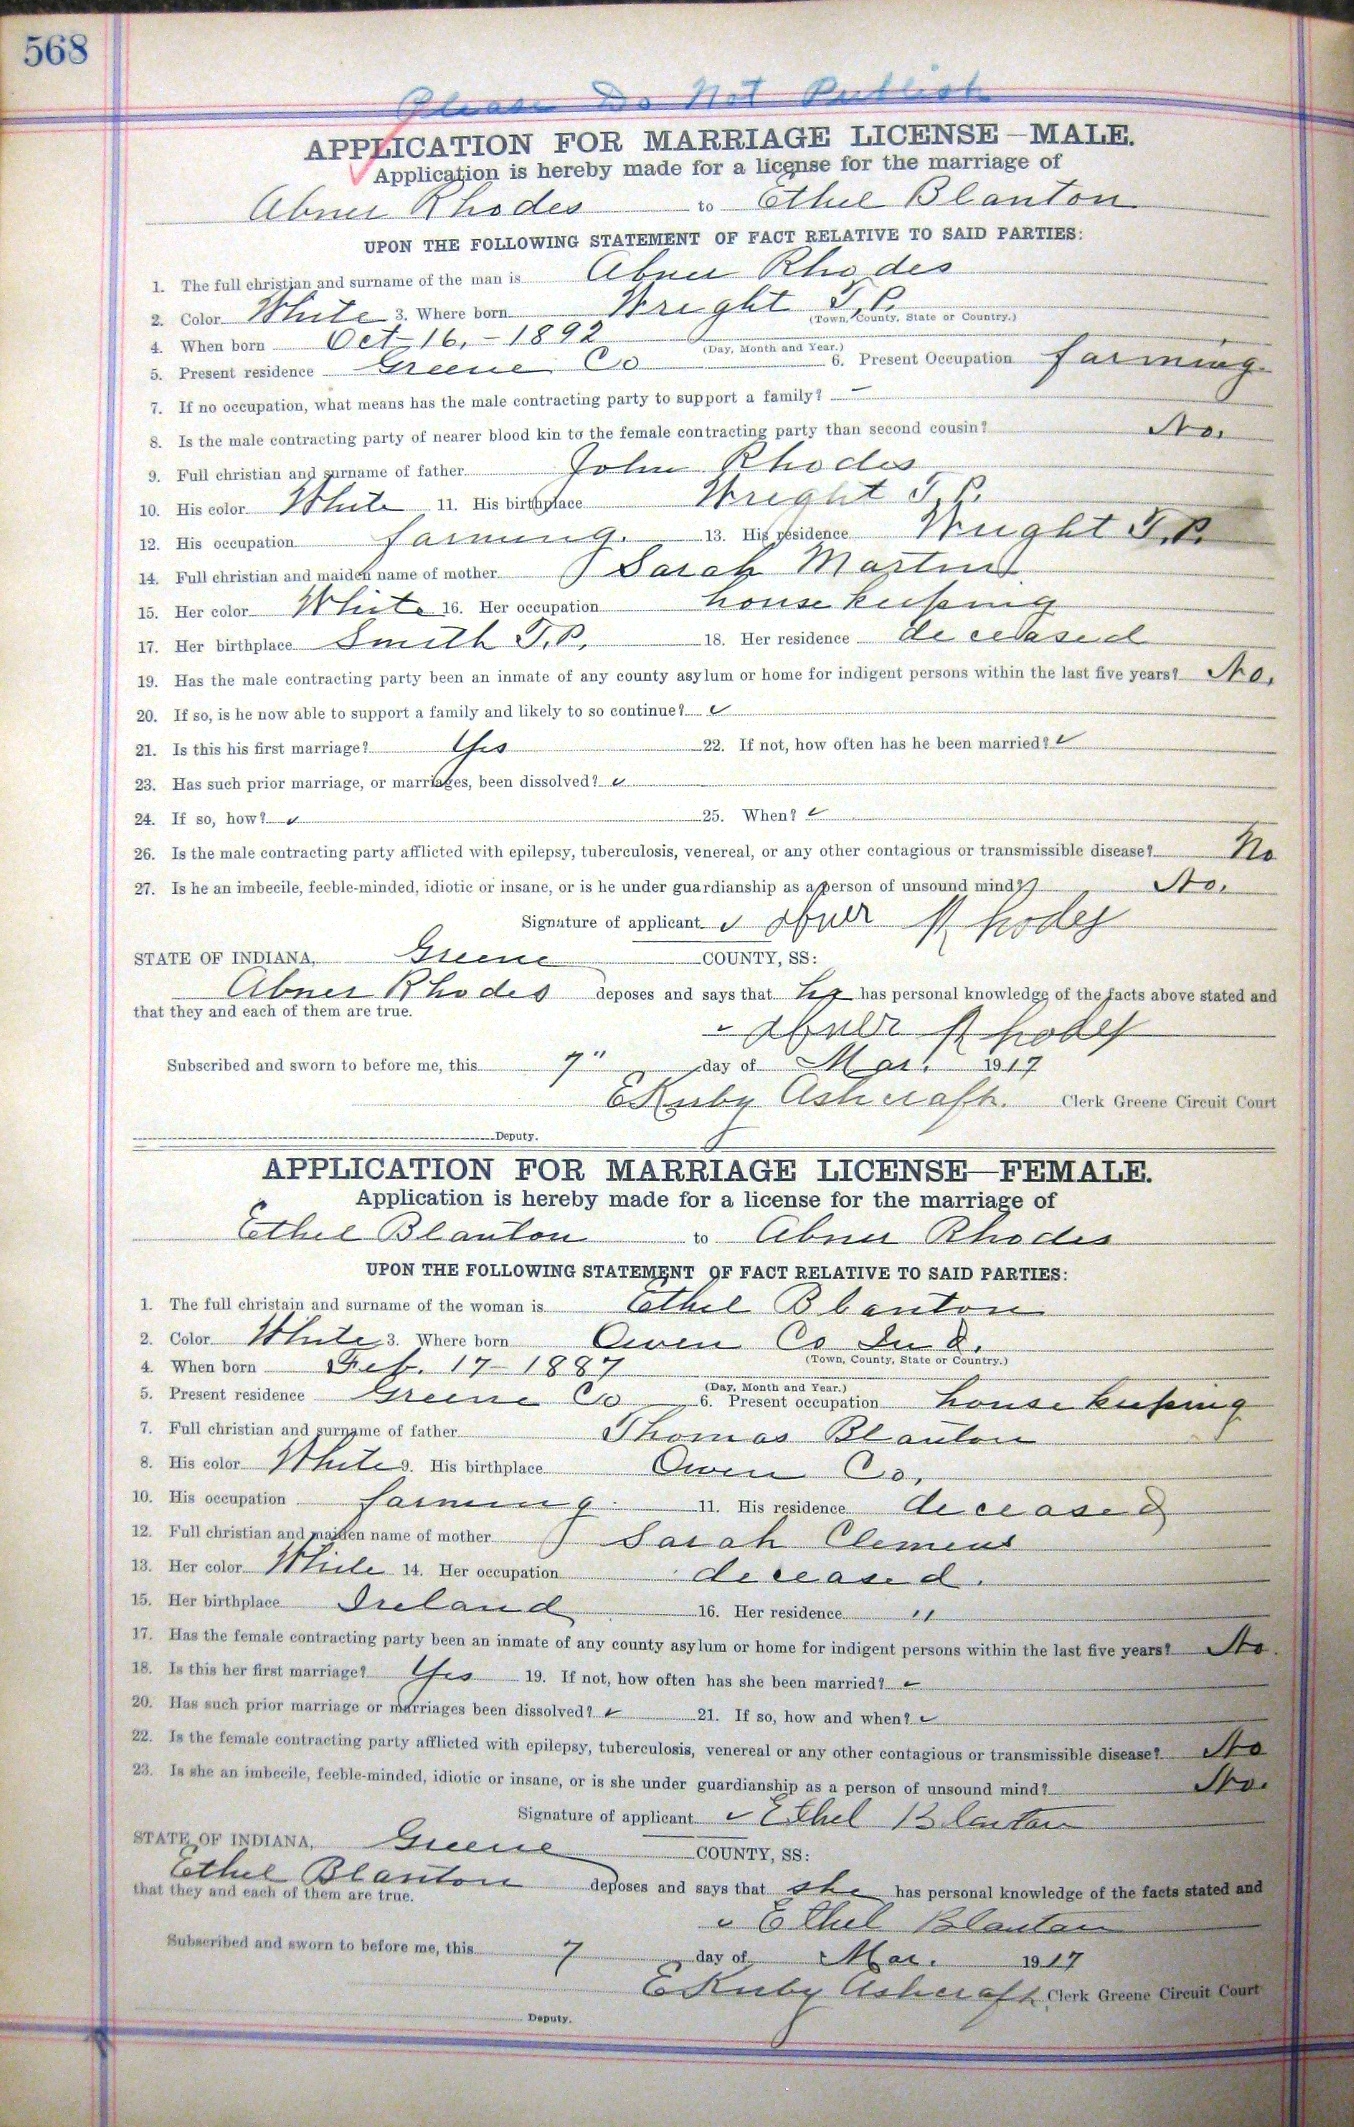 568
Please Do Not Publish
APPLICATION FOR MARRIAGE LICENSE—MALE.
Application is hereby made for a license for the marriage of
Abner Rhodes to Ethel Blanton
UPON THE FOLLOWING STATEMENT OF FACT RELATIVE TO SAID PARTIES:
1. The full christian and surname of the man is Abner Rhodes
2. Color White 3. Where born Wright T.P.
(Town, County, State or Country.)
4. When born Oct 16, - 1892
(Day, Month and Year.)
5. Present residence Greene Co 6. Present Occupation farming
7. If no occupation, what means has the male contracting party to support a family? —
8. Is the male contracting party of nearer blood kin to the female contracting party than second cousin? No.
9. Full christian and surname of father John Rhodes
10. His color White 11. His birthplace Wright T.P.
12. His occupation farming. 13. His residence Wright T.P.
14. Full christian and maiden name of mother Sarah Martin
15. Her color White 16. Her occupation house keeping
17. Her birthplace Smith T.P. 18. Her residence deceased
19. Has the male contracting party been an inmate of any county asylum or home for indigent persons within the last five years? No.
20. If so, is he now able to support a family and likely to so continue? ✓
21. Is this his first marriage? Yes 22. If not, how often has he been married? ✓
23. Has such prior marriage, or marriages, been dissolved? ✓
24. If so, how? ✓ 25. When? ✓
26. Is the male contracting party afflicted with epilepsy, tuberculosis, venereal, or any other contagious or transmissible disease? No
27. Is he an imbecile, feeble-minded, idiotic or insane, or is he under guardianship as a person of unsound mind? No.
Signature of applicant ✓ Abner Rhodes
STATE OF INDIANA, Greene COUNTY, SS:
Abner Rhodes deposes and says that he has personal knowledge of the facts above stated and
that they and each of them are true.
✓ Abner Rhodes
Subscribed and sworn to before me, this 7" day of Mar. 1917
E Kirby Ashcraft. Clerk Greene Circuit Court
Deputy.
APPLICATION FOR MARRIAGE LICENSE—FEMALE.
Application is hereby made for a license for the marriage of
Ethel Blanton to Abner Rhodes
UPON THE FOLLOWING STATEMENT OF FACT RELATIVE TO SAID PARTIES:
1. The full christain and surname of the woman is Ethel Blanton
2. Color White 3. Where born Owen Co Ind.
(Town, County, State or Country.)
4. When born Feb. 17 - 1887
(Day, Month and Year.)
5. Present residence Greene Co 6. Present occupation house keeping
7. Full christian and surname of father Thomas Blanton
8. His color White 9. His birthplace Owen Co.
10. His occupation farming 11. His residence deceased
12. Full christian and maiden name of mother Sarah Clemens
13. Her color White 14. Her occupation deceased.
15. Her birthplace Ireland 16. Her residence "
17. Has the female contracting party been an inmate of any county asylum or home for indigent persons within the last five years? No.
18. Is this her first marriage? Yes 19. If not, how often has she been married? ✓
20. Has such prior marriage or marriages been dissolved? ✓ 21. If so, how and when? ✓
22. Is the female contracting party afflicted with epilepsy, tuberculosis, venereal or any other contagious or transmissible disease? No
23. Is she an imbecile, feeble-minded, idiotic or insane, or is she under guardianship as a person of unsound mind? No.
Signature of applicant ✓ Ethel Blanton
STATE OF INDIANA, Greene COUNTY, SS:
Ethel Blanton deposes and says that she has personal knowledge of the facts stated and
that they and each of them are true.
✓ Ethel Blanton
Subscribed and sworn to before me, this 7 day of Mar. 1917
E Kirby Ashcraft, Clerk Greene Circuit Court
Deputy.